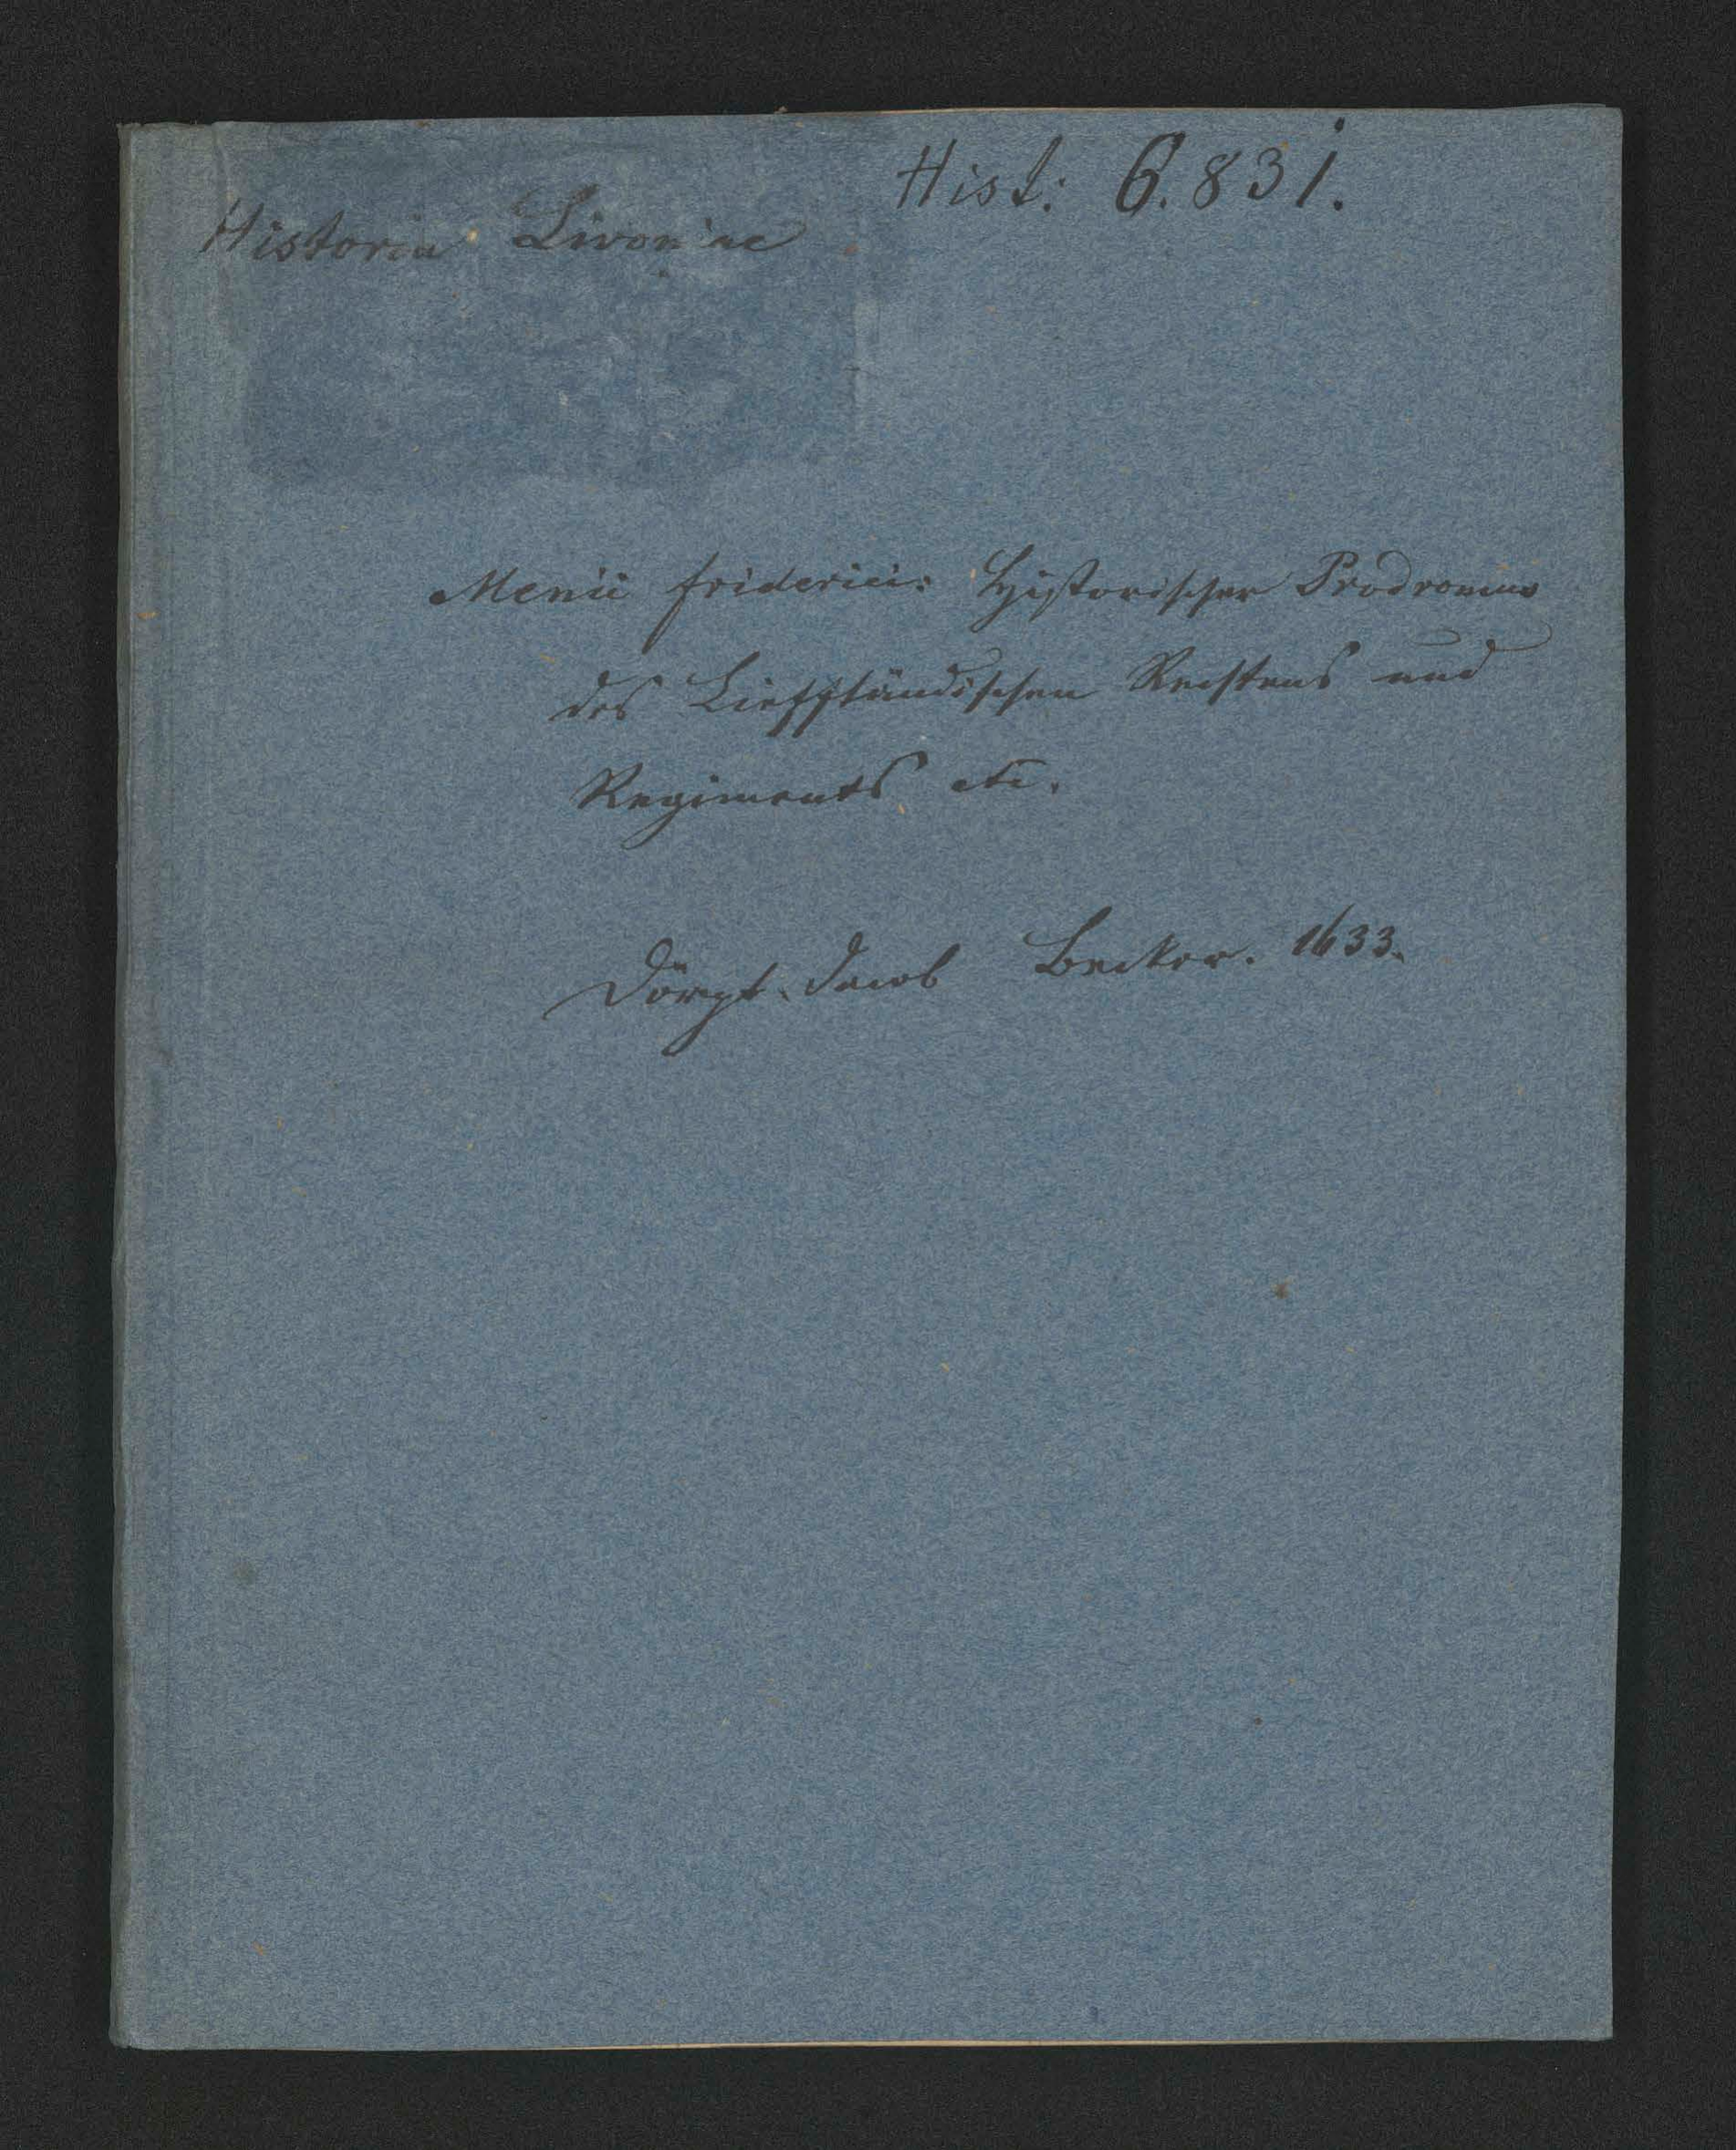 Hist: 6.831.
Historia Livoniae
Menii friderici: Historischer Prodromus
des Liefländischen Rechtens und
Regiments etc.
Dörpt. Jacob Becker. 1633.